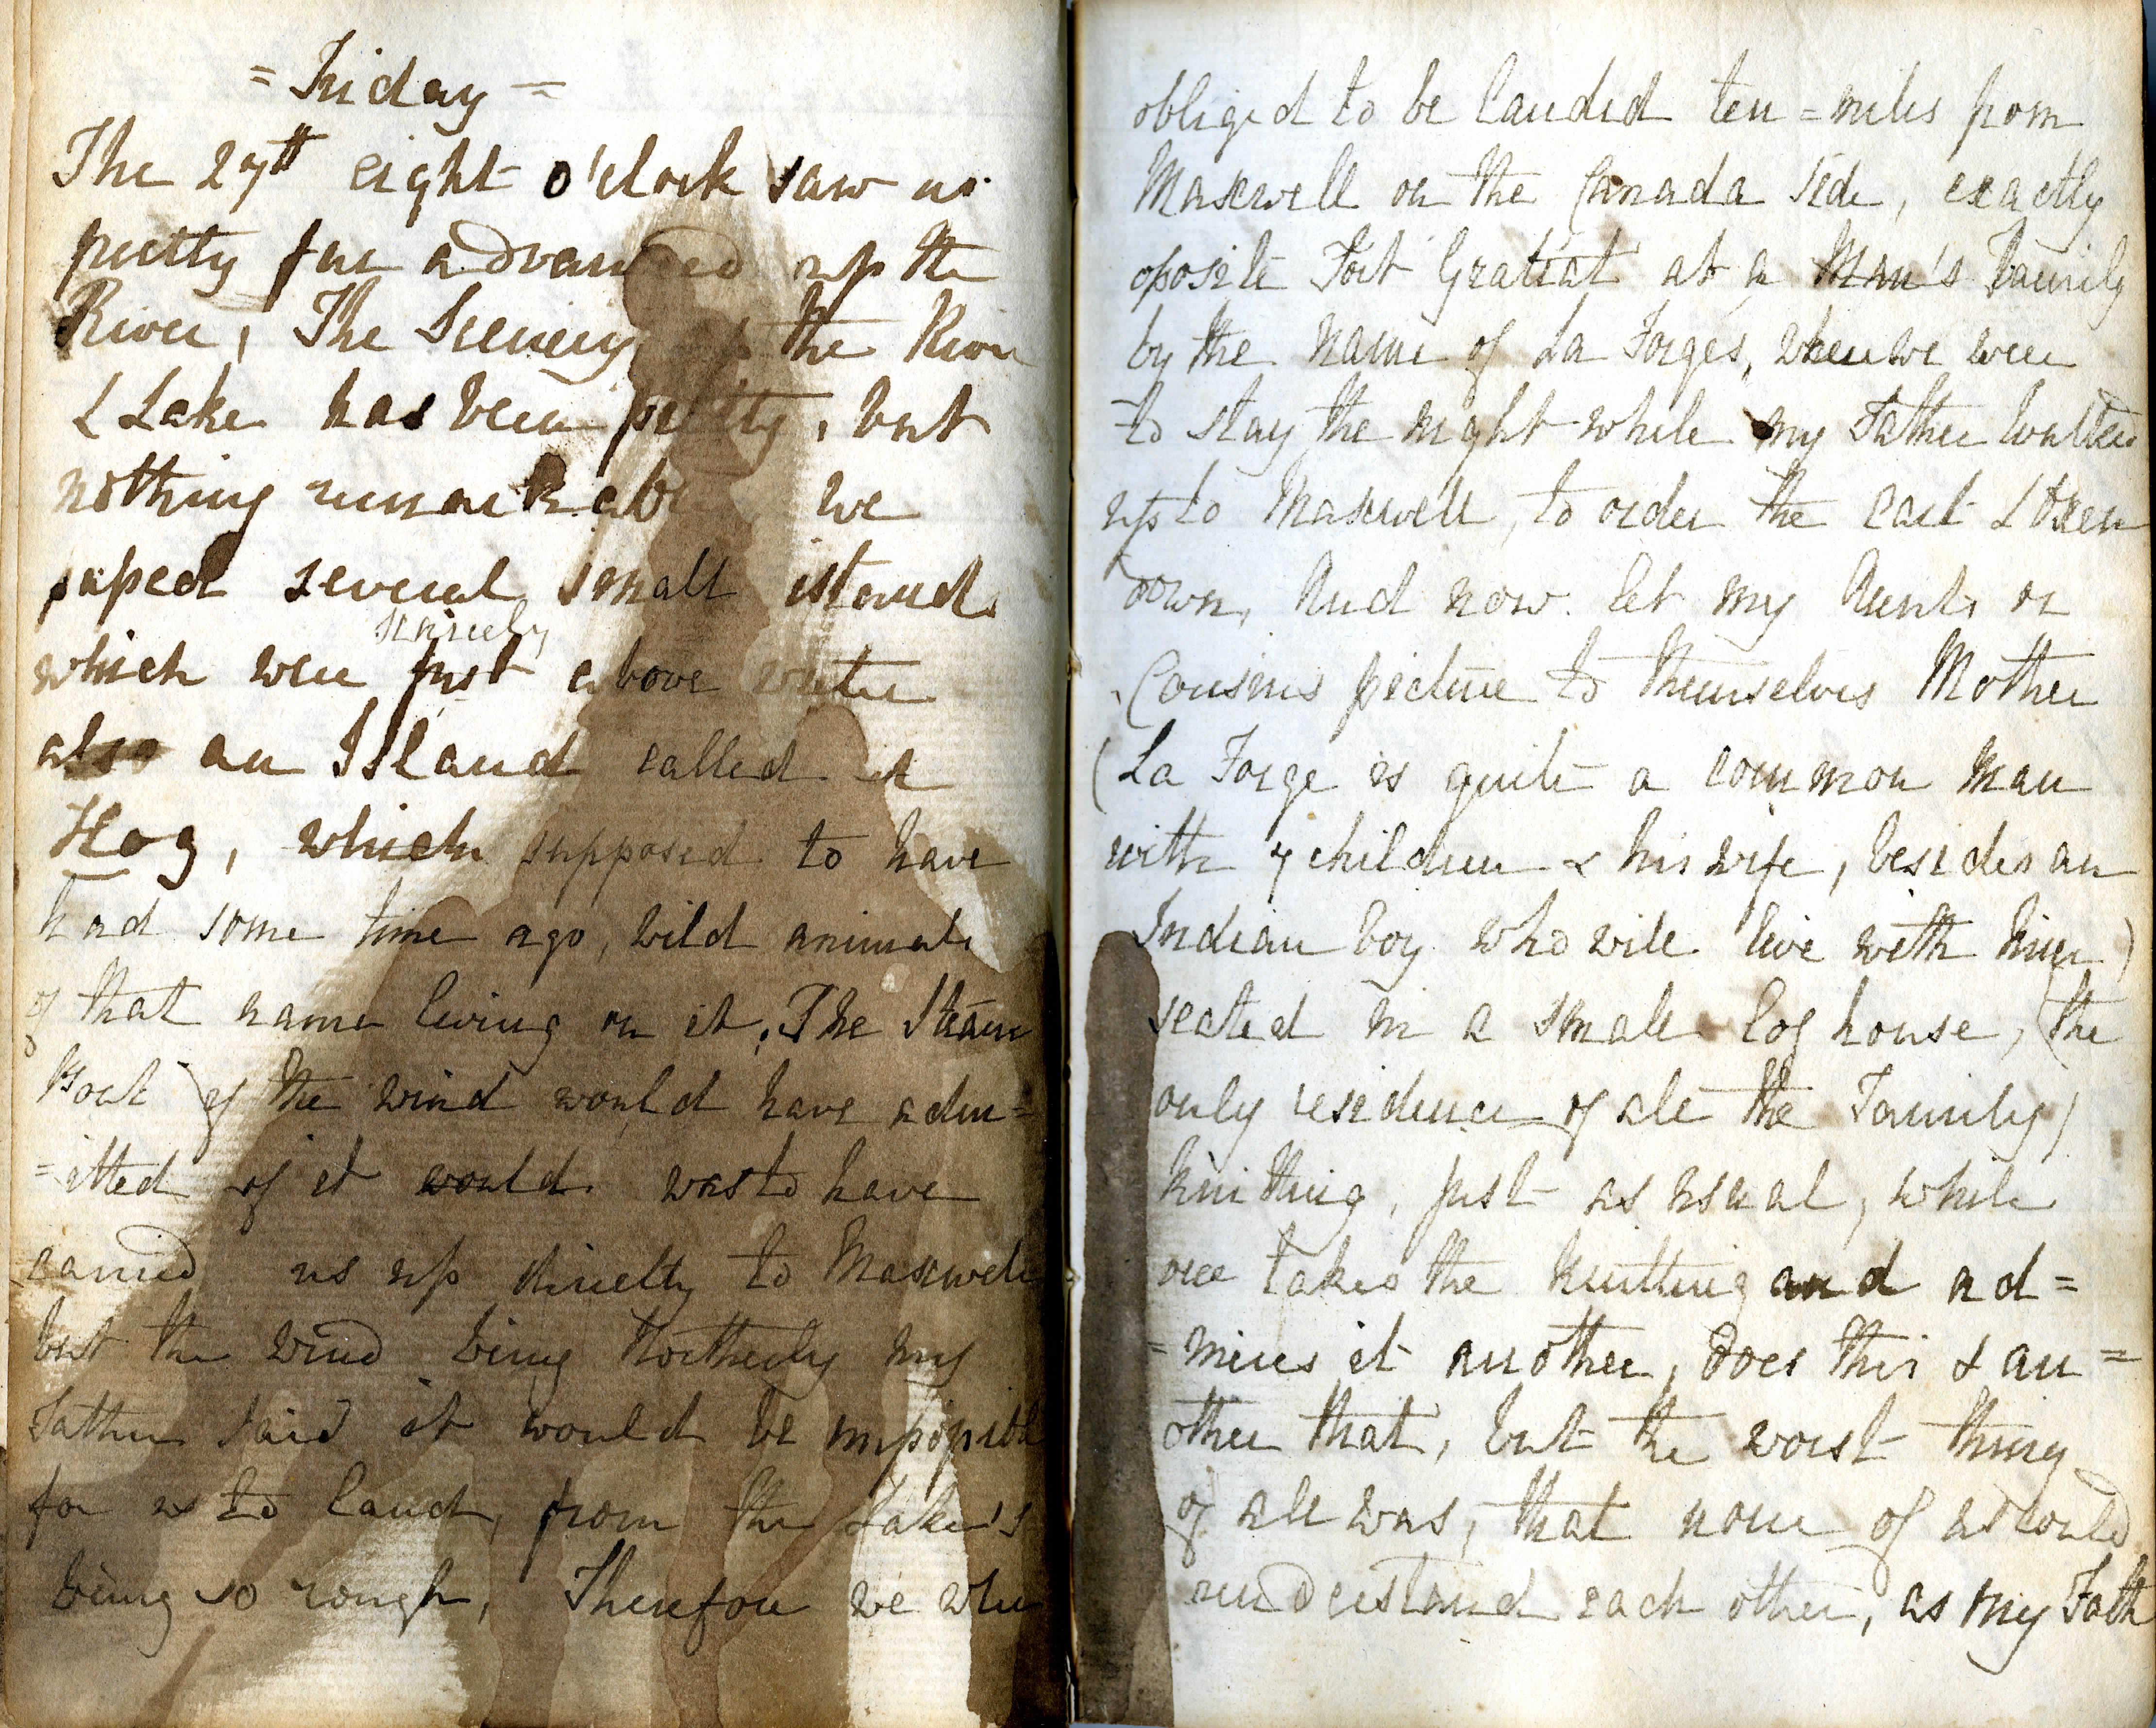 = Friday =
The 27th eight o'clock saw us
pretty far advanced up the
River, The Scenery of the River
& Lake has been pretty, but
nothing remarkable we
passed several small islands
scarcely
which were just above water
also an Island called it
Hog, which supposed to have
had some time ago, wild animals
of that name living on it. The Steam
Boat if the wind would have adm=
=itted of it would was to have
carried us up directly to Maxwell
but the wind being Northerly my
Father said it would be impossible
for us to land, from the Lake's
being so rough, Therefore we when
obliged to be landed ten = miles from
Maxwell on the Canada side, exactly
oposite Fort Gratiat at a Man's Family
by the name of La Forges, when we were
to stay the night while my Father walked
up to Maxwell, to order the cart & Oxen
down, And now let my Aunts or
Cousins picture to themselves Mother
(La Forge is quite a common Man
with 7 children & his wife, besides an
Indian boy who will live with him)
seated in a small log house, (the
only residence of all the Family)
knitting, just as usual, while
one takes the knitting and ad=
=mires it another, does this & an=
other that, but the worst thing
of all was, that none of us could
understand each other, as my Fath